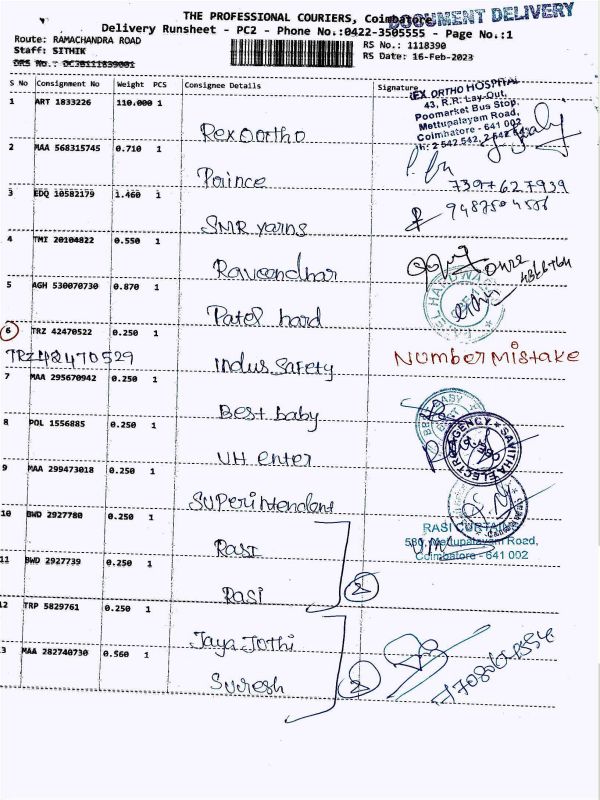 THE PROFESSIONAL COURIERS, Coimbatore
DOCUMENT DELIVERY
Delivery Runsheet - PC2 - Phone No.:0422-3505555 - Page No.:1
Route: RAMACHANDRA ROAD
RS No.: 1118390
Staff: SITHIK
RS Date: 16-Feb-2023
DRS No.: DC30111839001
S No Consignment No Weight PCS Consignee Details Signature
1 ART 1833226 110.000 1 Rex Ortho
ORTHO HOSPITAL
43, R.R. Lay-Out,
Poomarket Bus Stop,
Mettupalayam Road,
Coimbatore - 641 002
2 MAA 568315745 0.710 1 Prince
7397627939
3 EDQ 10582179 1.460 1 SMR yarns
4 TMI 20104822 0.550 1 Raveendhar
5 AGH 530070730 0.870 1 Patel hard
6 TRZ 42470522 0.250 1 Indus Safety
TRZ 42470529
Number Mistake
7 MAA 295670942 0.250 1 Best Baby
8 POL 1556885 0.250 1 VH enter
SAVITHA ELECTRO AGENCY
9 MAA 299473018 0.250 1 Superintendent
10 BWD 2927780 0.250 1 Rasi
RASI CURTAIN
580, Mettupalayam Road,
Coimbatore - 641 002
11 BWD 2927739 0.250 1 Rasi
2
12 TRP 5829761 0.250 1 Jaya Jothi
3 MAA 282740730 0.560 1 Suresh
2